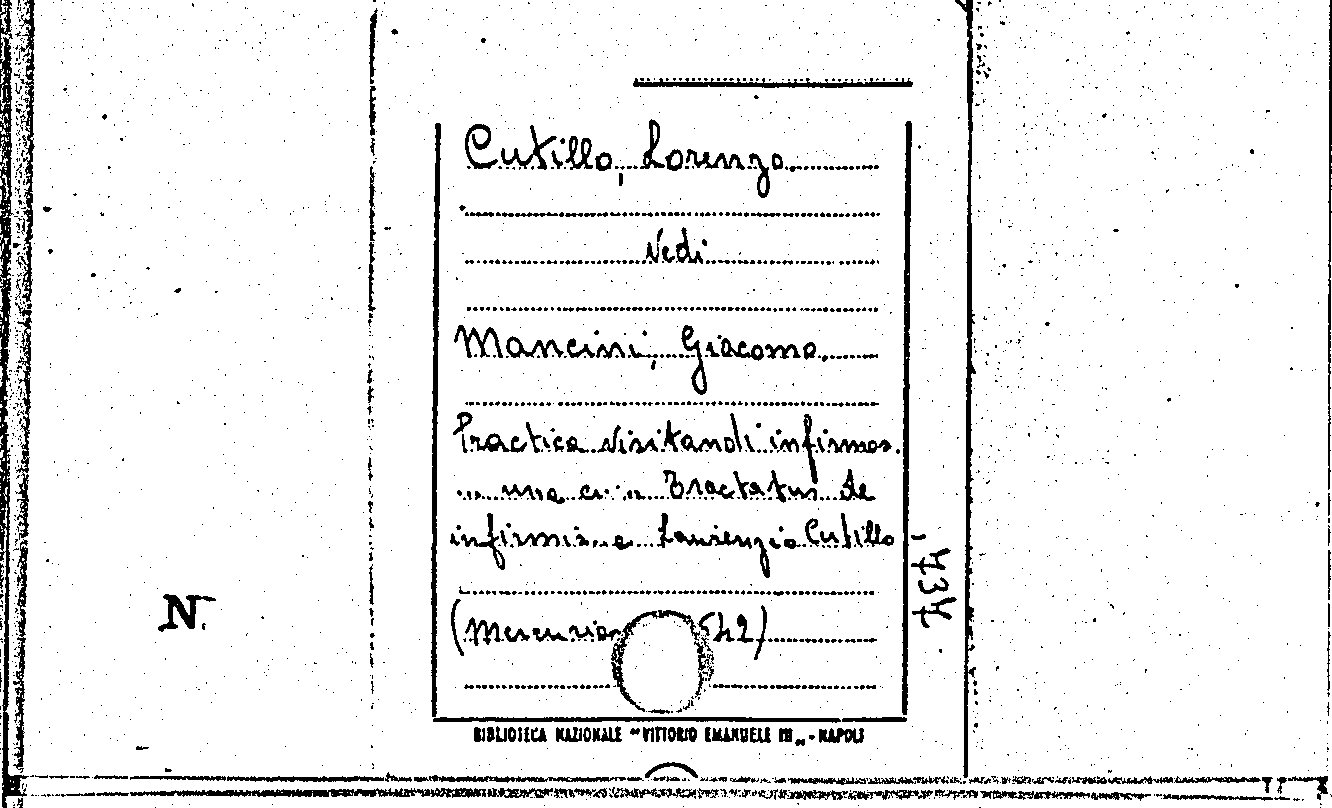 Cutillo, Lorenzo.
Vedi
Mancini, Giacomo.
Practica visitandi infirmos.
... una cu.. Tractatus de
infirmis... a Laurenzio Cutillo
(Mercurian 542)
N.
734
BIBLIOTECA NAZIONALE "VITTORIO EMANUELE III" - NAPOLI